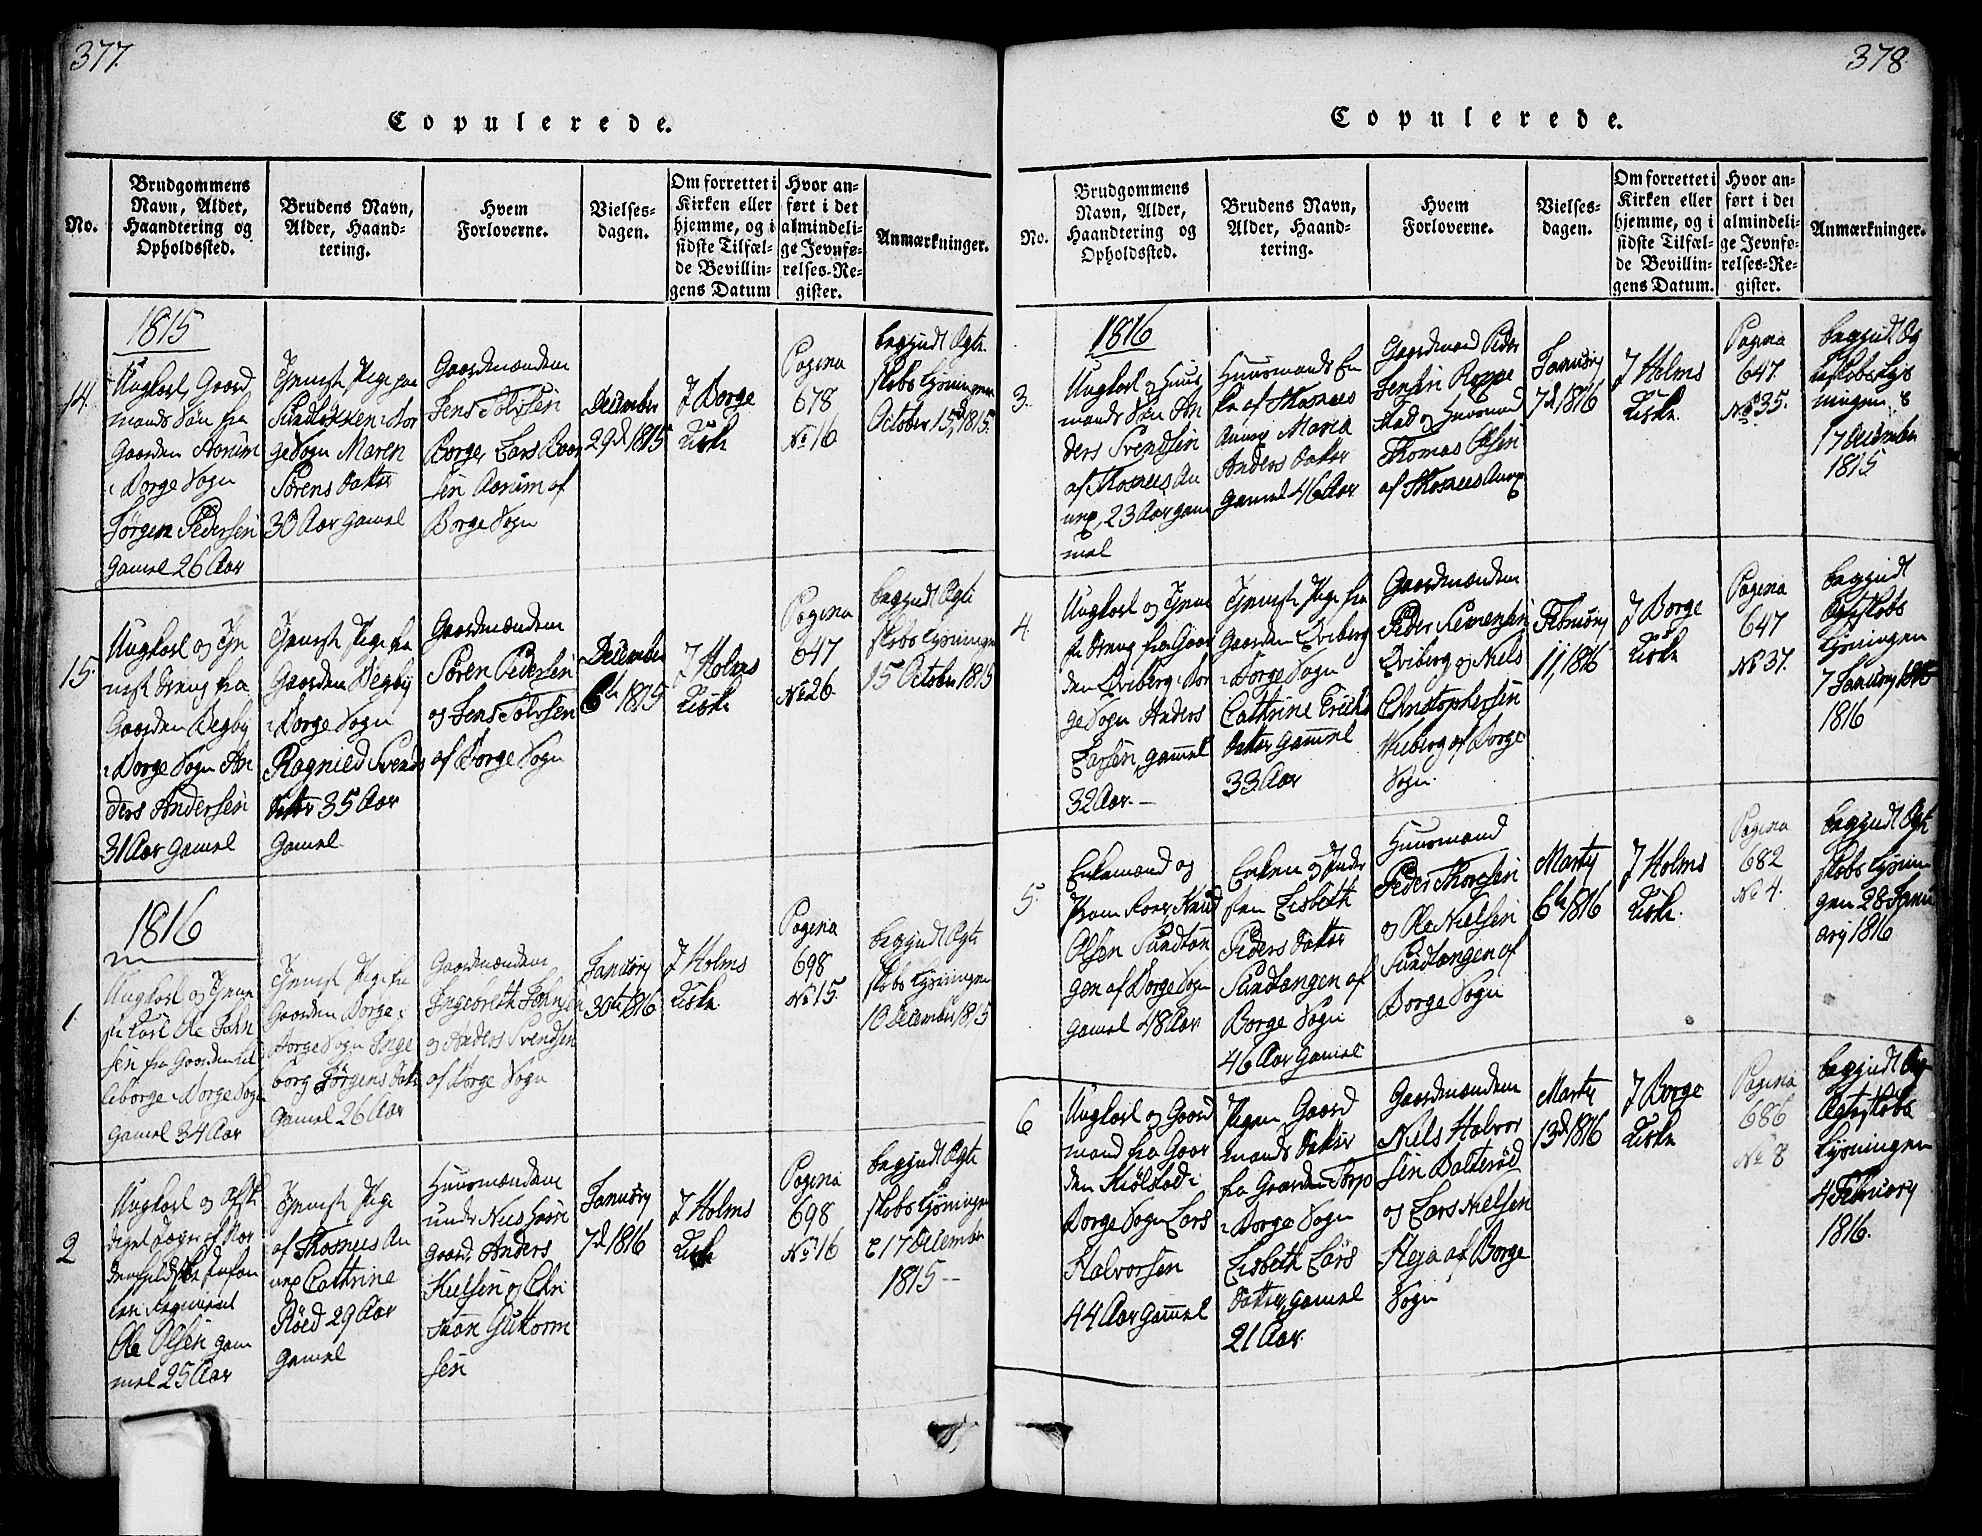 377.
Copulerede.
No.
Brudgommens
Navn, Alder,
Haandtering og
Opholdssted.
Brudens Navn,
Alder, Haand-
tering.
Hvem
Forloverne.
Vielses-
dagen.
Om forrettet i
Kirken eller
hjemme, og i
sidste Tilfæl-
de Bevillin-
gens Datum
Hvor an-
ført i det
almindeli-
ge Jevnfø-
relses-Re-
gister.
Anmærkninger.
1815
14.
Ungkarl, Gaard
mands Søn fra
Gaarden
i Borge Sogn
Jørgen Pedersen
gamel 26 Aar
Pige paa
i Bor
ge Sogn Maren
Sørens Datter
30 Aar gamel
Gaardmændene
Jens Tolvsen
Borge, Lars
sen Aarum af
Borge Sogn
December
29d 1815
J Borge
Kirke
Pagina
678
No 16
begyndt Ægte
skabs Lysningen
October 15d, 1815.
15.
Ungkarl og
Dreng fra
Gaarden Begby
i Borge Sogn An
ders Andersen
31 Aar gamel
Pige fra
Gaarden Begby
i Borge Sogn
Ragnild Svends
Datter 35 Aar
gamel
Gaardmændene
Søren Pedersen
og Jens Tolvsen
af Borge Sogn
December
6te 1815
J Holms
Kirke
Pagina
647
No 26
begyndt Ægte
skabs Lysningen
15 October 1815
1816
1.
Ungkarl og
Karl Ole John
sen fra Gaarden Lil
leborge i Borge Sogn
gamel 34 Aar
Pige fra
Gaarden Borge i
Borge Sogn Inge
borg Jørgens Datter
gamel 26 Aar
Gaardmændene
Ingebreth Johnsen
og Anders Svendsen
af Borge Sogn
January
30te 1816
J Holms
Kirke
Pagina
698
No 15.
begyndt Ægte
skabs Lysningen
10 December 1815
2
Ungkarl og
Jæger af Nor
Regiment
Ole Olsen gam
mel 25 Aar
Pige
af Thosnees
Cathrine
Röed 29 Aar
gamel
Huusmændene
under
gaard, Anders
og Chri
Guttorm
sen
January
7d 1816
J Holms
Kirke
Pagina
698
No 16
begyndt Ægte
skabs Lysningen
17 December
1815 -
378.
Copulerede.
No.
Brudgommens
Navn, Alder,
Haandtering og
Opholdssted.
Brudens Navn,
Alder, Haand-
tering.
Hvem
Forloverne.
Vielses-
dagen.
Om forrettet i
Kirken eller
hjemme, og i
sidste Tilfæl-
de Bevillin-
gens Datum.
Hvor an-
ført i det
almindeli-
ge Jevnfø-
relses-Re-
gister.
Anmærkninger.
1816
3.
Ungkarl og Huus
mands Søn An
ders Svendsen
af Thosnees
23 Aar gam
mel
Huusmands En
ke af Thosnees
Maria
Anders Datter
gamel 46 Aar
Gaardmand Peder
Jensen
og Huusmand
Thomas Olsen
af Thosnees
January
7d 1816
J Holms
Kirke
Pagina
647
No 35.
begyndt Æg
teskabs Lys
ningen
17 December
1815
4
Ungkarl og
Dreng fra Gaar
den Qviberg i Bor
ge Sogn Anders
Larsen, gammel
32 Aar. -
Pige fra
Gaarden Qviberg
i Borge Sogn
Cathrine Erichs
Datter gammel
33 Aar
Gaardmændene
Peder
Qviberg og Niels
Christophersen
af Borge
Sogn.
February
11, 1816
J Borge
Kirke
Pagina
647
No 37.
begyndt
Ægteskabs
Lysningen
7 January 1815
1816
5.
Enkemand og
Knud
Olsen Sundtan
gen af Borge Sogn
gamel 48 Aar
Enken og
Lisbeth
Peders Datter
Sundtangen af
Borge Sogn
46 Aar gamel
Huusmand
Peder Thoresen
og Ole Nielsen
Sundtangen af
Borge Sogn
Marty
6te 1816
J Holms
Kirke.
Pagina
682
No 4.
begyndt Ægte
skabs Lysnin
gen 28 Janu
ary 1816
6
Ungkarl og Gaard
mand fra Gaar
den Kiölstad i
Borge Sogn Lars
Halvorsen
44 Aar gammel
Pigen Gaard
mands Datter
fra Gaarden Torp
i Borge Sogn
Lisbeth Lars
Datter, gamel
21 Aar.
Gaardmændene
Niels Halvor
sen
og Lars Nielsen
af Borge
Sogn
Marty
13d 1816
J Borge
Kirke
Pagina
686
No 8
begyndt
Ægteskabs
Lysningen
4 February
1816.